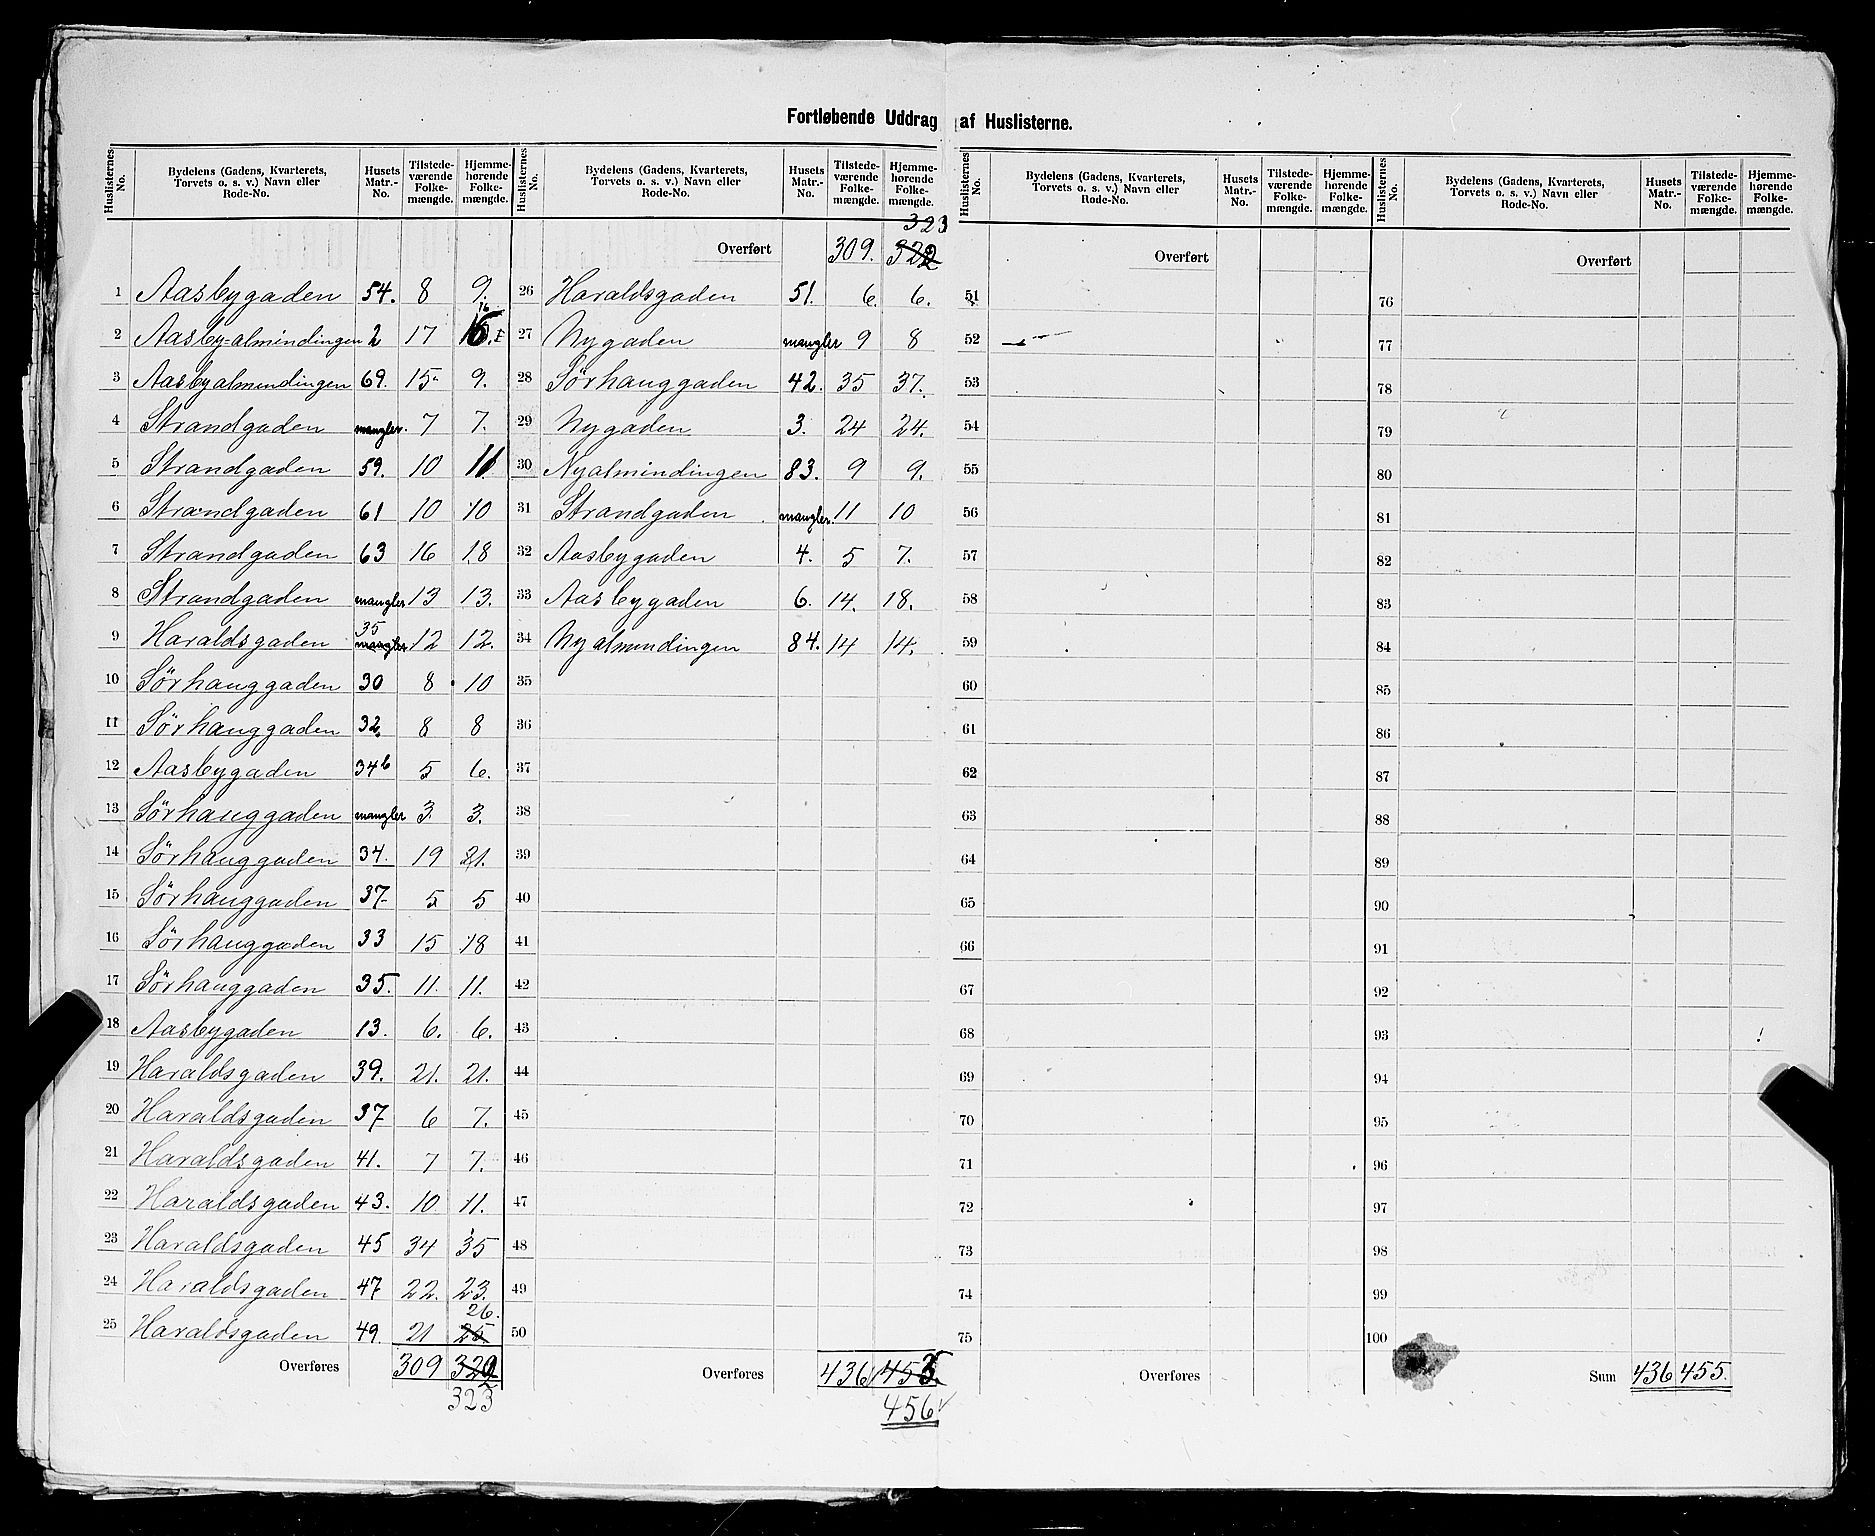 Fortløbende Uddrag af Huslisterne.
Huslisternes No. | Bydelens (Gadens, Kvarterets, Torvets o. s. v.) Navn eller Rode-No. | Husets Matr.-No. | Tilstedeværende Folkemængde. | Hjemmehørende Folkemængde.
1 Aasbygaden 54. 8 9.
2 Aasby=almindingen 2 17 16
3 Aasbyalmendingen 69. 15 9.
4 Strandgaden mangler. 7 7.
5 Strandgaden 59. 10 11.
6 Strandgaden 61 10 10
7 Strandgaden 63 16 18
8 Strandgaden mangler 13 13.
9 Haraldsgaden 35 mangler 12 12.
10 Sørhauggaden 30 8 10
11 Sørhauggaden 32. 8 8
12 Aasbygaden 34b 5 6.
13 Sørhauggaden mangler 3. 3.
14 Sørhauggaden 34. 19 21.
15 Sørhauggaden 37 5 5
16 Sørhauggaden 33 15 18
17 Sørhauggaden 35. 11. 11.
18 Aasbygaden 13. 6. 6.
19 Haraldsgaden 39. 21. 21.
20 Haraldsgaden 37 6 7.
21 Haraldsgaden 41. 7 7.
22 Haraldsgaden 43. 10 11.
23 Haraldsgaden 45 34 35
24 Haraldsgaden 47 22. 23.
25 Haraldsgaden 49. 21 25 26.
Overføres 309 322
323
Huslisternes No. | Bydelens (Gadens, Kvarterets, Torvets o. s. v.) Navn eller Rode-No. | Husets Matr.-No. | Tilstedeværende Folkemængde. | Hjemmehørende Folkemængde.
323
Overført 309. 322
26 Haraldsgaden 51. 6. 6.
27 Nygaden mangler 9 8
28 Sørhauggaden 42. 35 37.
29 Nygaden 3. 24 24.
30 Nyalmindingen 83. 9 9.
31 Strandgaden mangler. 11 10
32 Aasbygaden 4. 5 7.
33 Aasbygaden 6. 14. 18.
34 Nyalmendingen 84. 14 14.
35
36
37
38
39
40
41
42
43
44
45
46
47
48
49
50
Overføres 436 455.
456
Huslisternes No. | Bydelens (Gadens, Kvarterets, Torvets o. s. v.) Navn eller Rode-No. | Husets Matr.-No. | Tilstedeværende Folkemængde. | Hjemmehørende Folkemængde.
Overført
51
52
53
54
55
56
57
58
59
60
61
62
63
64
65
66
67
68
69
70
71
72
73
74
75
Overføres
Huslisternes No. | Bydelens (Gadens, Kvarterets, Torvets o. s. v.) Navn eller Rode-No. | Husets Matr.-No. | Tilstedeværende Folkemængde. | Hjemmehørende Folkemængde.
Overført
76
77
78
79
80
81
82
83
84
85
86
87
88
89
90
91
92
93
94
95
96
97
98
99
100
Sum 436 455.